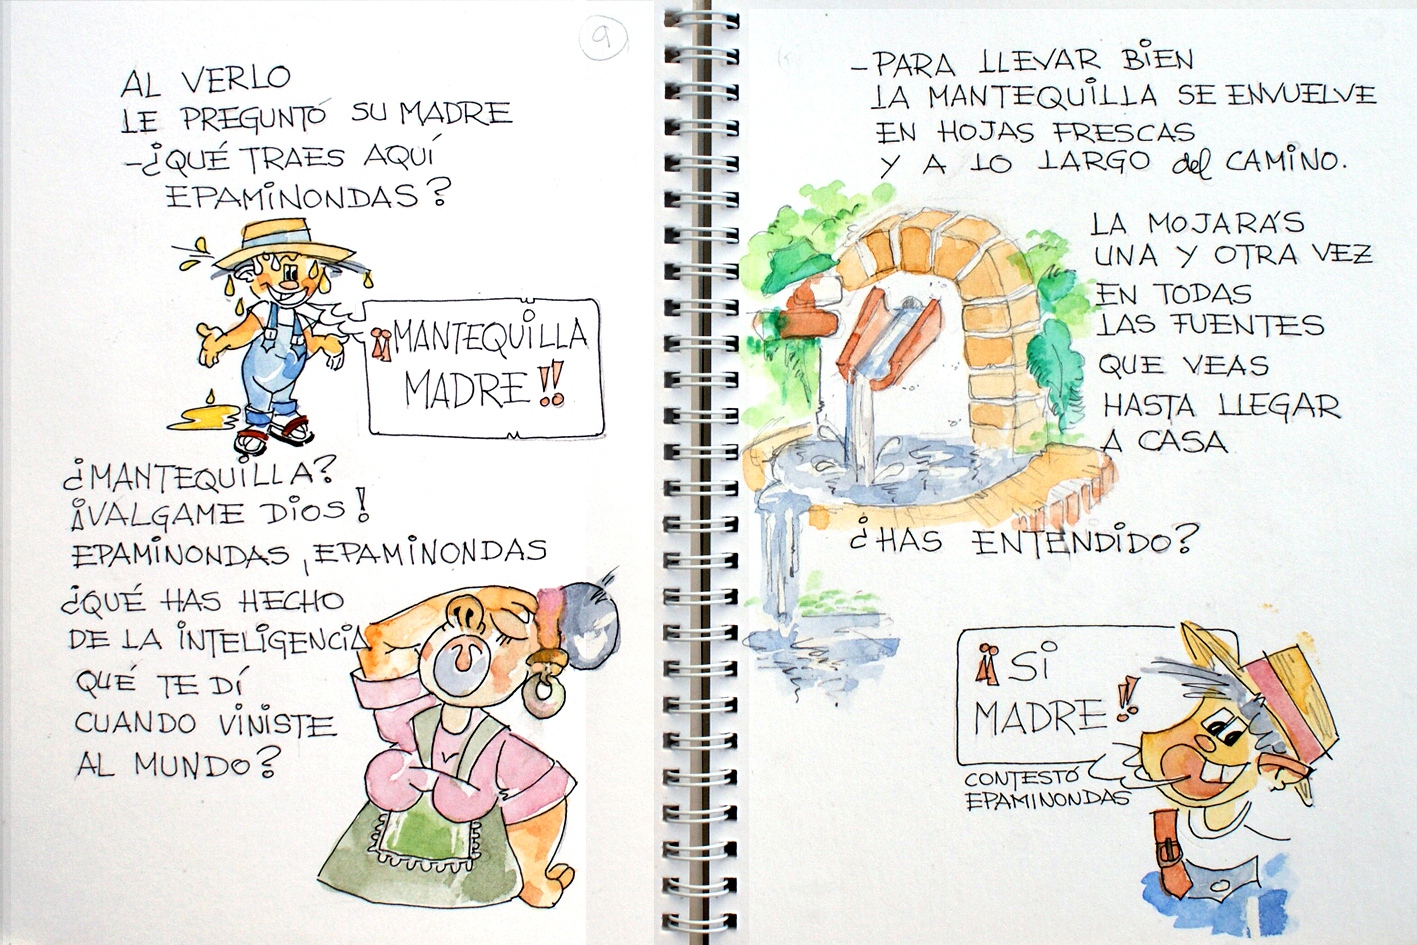 9
AL VERLO
LE PREGUNTÓ SU MADRE
-¿QUÉ TRAES AQUÍ
EPAMINONDAS?
¡¡MANTEQUILLA
MADRE!!
¿MANTEQUILLA?
¡VALGAME DIOS!
EPAMINONDAS, EPAMINONDAS
¿QUÉ HAS HECHO
DE LA INTELIGENCIA
QUÉ TE DÍ
CUANDO VINISTE
AL MUNDO?
-PARA LLEVAR BIEN
LA MANTEQUILLA SE ENVUELVE
EN HOJAS FRESCAS
Y A LO LARGO del CAMINO.
LA MOJARÁS
UNA Y OTRA VEZ
EN TODAS
LAS FUENTES
QUE VEAS
HASTA LLEGAR
A CASA
¿HAS ENTENDIDO?
¡¡SI
MADRE!!
CONTESTÓ
EPAMINONDAS